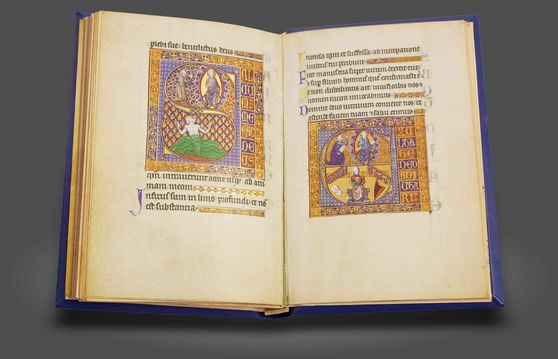 plebi sue: benedictus deus
S AL
UU
M
ME
FAC
DE
US
qm intraverunt aque usq; ad ani
mam meam
Infixus sum in limo profundi: et no
est substantia
Incensa igni et suffossa: ab increpatione
vultus tui peribunt
Fiat manus tua super virum dextere tue:
et sup filium hominis que confirmasti t
Et non discedimus a te: vivificabis nos
nomen tuum invocabimus
Domine deus virtutum converte nos: et
ostende faciem tuam et salvi erimus
E XU
LTA
TE
DEO